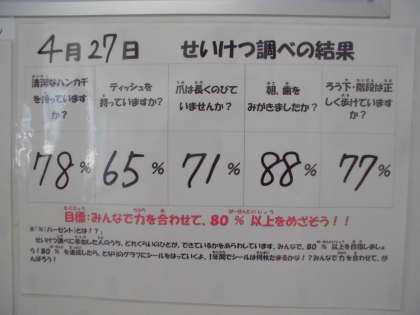 4月27日 せいけつ調べの結果
清潔なハンカチを持っていますか?
ティッシュを持っていますか?
爪は長くのびていませんか?
朝、歯をみがきましたか?
ろう下・階段は正しく歩けていますか?
78% 65% 71% 88% 77%
目標:みんなで力を合わせて、80%以上をめざそう!!
※「%(パーセント)とは!?」
せいけつ調べに参加した人のうち、どれくらいのひとが、できているかをあらわしています。みんなで、80%以上を目指しましょ
う!80%を達成したら、となりのグラフにシールをはっていくよ。1年間でシールは何枚たまるかな!?みんなで力を合わせて、が
んばろう!